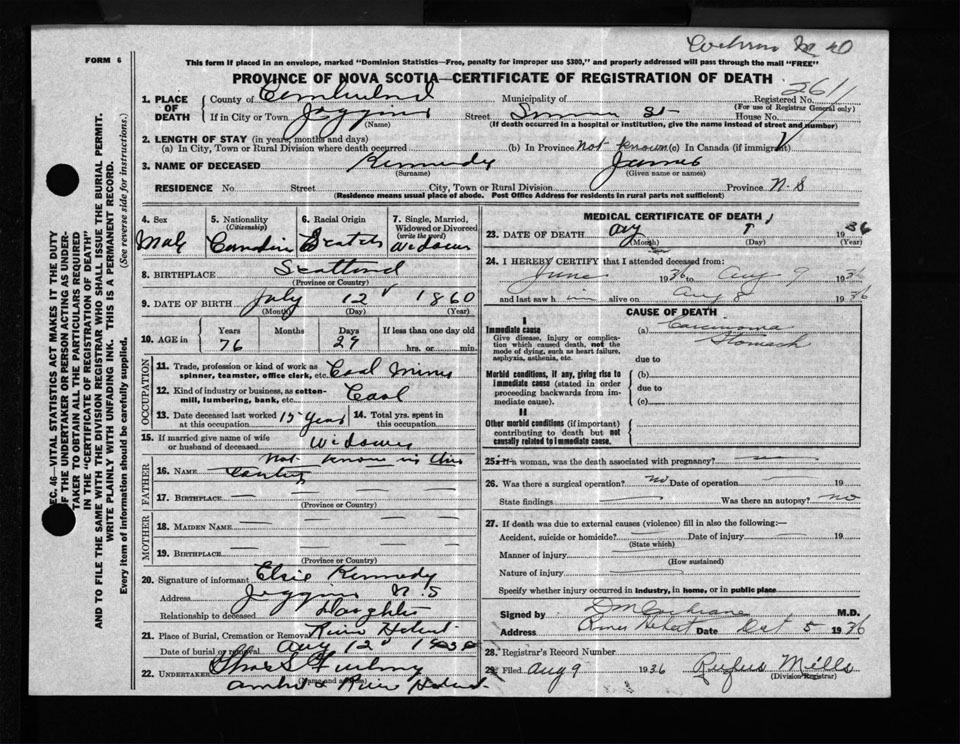 Cochran M D
FORM 6
This form if placed in an envelope, marked "Dominion Statistics—Free, penalty for improper use $300," and properly addressed will pass through the mail "FREE"
PROVINCE OF NOVA SCOTIA—CERTIFICATE OF REGISTRATION OF DEATH
2611
1. PLACE OF DEATH
County of Cumberland Municipality of Registered No.
(For use of Registrar General only)
If in City or Town Joggins Street House No.
(Name) (If death occurred in a hospital or institution, give the name instead of street and number)
2. LENGTH OF STAY (in years, months and days)
(a) In City, Town or Rural Division where death occurred (b) In Province not known (c) In Canada (if immigrant)
3. NAME OF DECEASED Kennedy James
(Surname) (Given name or names)
RESIDENCE No Street City, Town or Rural Division Province N.S
(Residence means usual place of abode. Post Office Address for residents in rural parts not sufficient)
4. Sex 5. Nationality (Citizenship) 6. Racial Origin 7. Single, Married, Widowed or Divorced (write the word)
Male Canadin Scotch Widower
8. BIRTHPLACE Scotland
(Province or Country)
9. DATE OF BIRTH July 12 1860
(Month) (Day) (Year)
10. AGE in Years Months Days If less than one day old
76 27 hrs. or min.
OCCUPATION
11. Trade, profession or kind of work as spinner, teamster, office clerk, etc. Coal Miner
12. Kind of industry or business, as cotton-mill, lumbering, bank, etc. Coal
13. Date deceased last worked at this occupation 15 Years 14. Total yrs. spent in this occupation
15. If married give name of wife or husband of deceased Widower
FATHER
not know in this
16. NAME Country
17. BIRTHPLACE
(Province or Country)
MOTHER
18. MAIDEN NAME
19. BIRTHPLACE
(Province or Country)
20. Signature of informant Elsie Kennedy
Address Joggins N.S
Relationship to deceased Daughter
21. Place of Burial, Cremation or Removal River Hebert
Date of burial or removal Aug 12 1936
22. UNDERTAKER
(Name and address)
River Hebert
MEDICAL CERTIFICATE OF DEATH
23. DATE OF DEATH Aug 8 1936
(Month) (Day) (Year)
24. I HEREBY CERTIFY that I attended deceased from:
June 1936 to Aug 9 1936
and last saw him alive on Aug 8 1936
CAUSE OF DEATH
I
Immediate cause (a) Carcinoma
Stomach
Give disease, injury or complication which caused death, not the mode of dying, such as heart failure, asphyxia, asthenia, etc.
due to
Morbid conditions, if any, giving rise to immediate cause (stated in order proceeding backwards from immediate cause).
(b)
due to
(c)
II
Other morbid conditions (if important) contributing to death but not causally related to immediate cause.
25. If a woman, was the death associated with pregnancy?
26. Was there a surgical operation? no Date of operation 19
State findings Was there an autopsy? no
27. If death was due to external causes (violence) fill in also the following:—
Accident, suicide or homicide? Date of injury 19
(State which)
Manner of injury
(How sustained)
Nature of injury
Specify whether injury occurred in industry, in home, or in public place
Signed by D M Cochrane M.D.
Address River Hebert Date Oct 5 1936
28. Registrar's Record Number
29. Filed Aug 9 1936 Rufus Mills
(Division Registrar)
SEC. 46—VITAL STATISTICS ACT MAKES IT THE DUTY
OF THE UNDERTAKER OR PERSON ACTING AS UNDER-
TAKER TO OBTAIN ALL THE PARTICULARS REQUIRED
IN THE "CERTIFICATE OF REGISTRATION OF DEATH"
AND TO FILE THE SAME WITH THE DIVISION REGISTRAR WHO SHALL ISSUE THE BURIAL PERMIT.
WRITE PLAINLY WITH UNFADING INK. THIS IS A PERMANENT RECORD.
Every item of information should be carefully supplied. (See reverse side for instructions.)